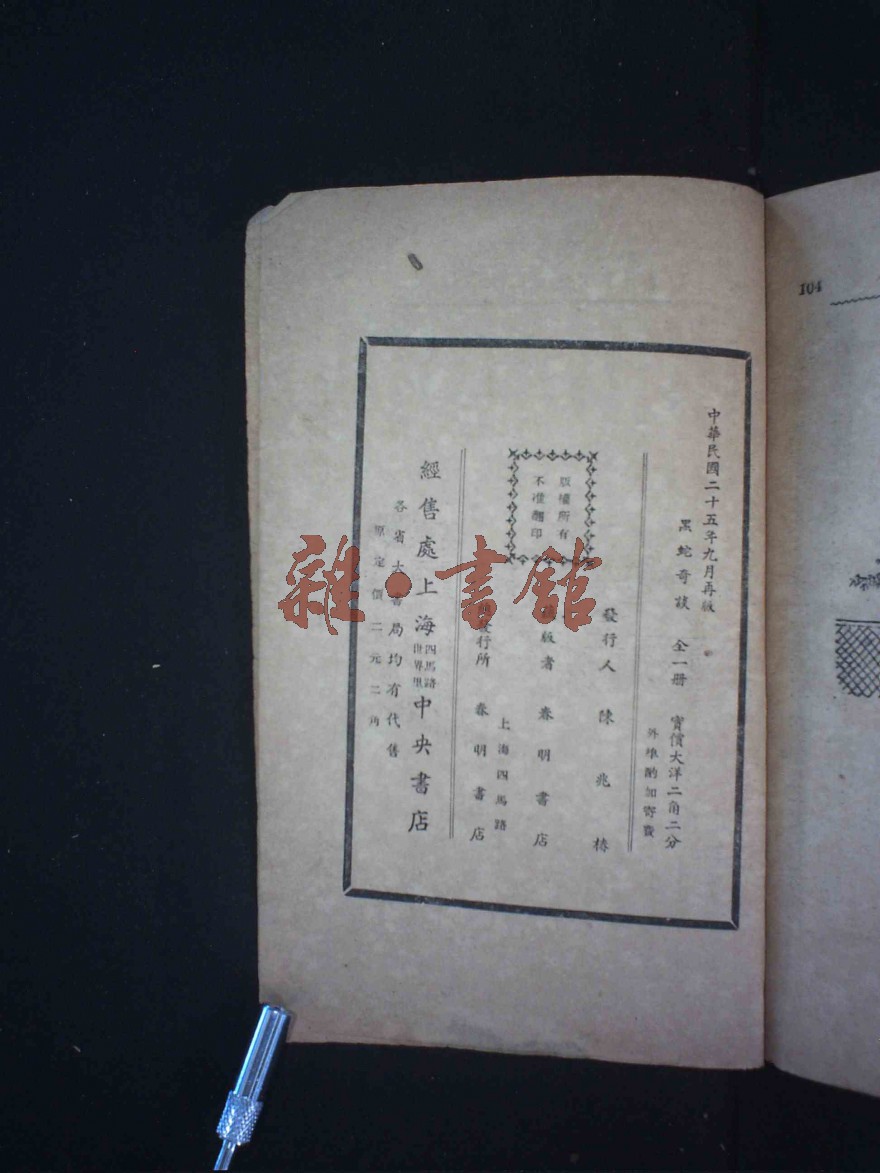 中華民國二十五年九月再版
黑蛇奇談 全一册 實價大洋二角二分
外埠酌加寄費
發行人 陳兆椿
版權所有
不准翻印
版者 春明書店
上海四馬路
發行所 春明書店
經售處上海四馬路世界里中央書店
各省大書局均有代售
原定價二元二角
雜·書館
104